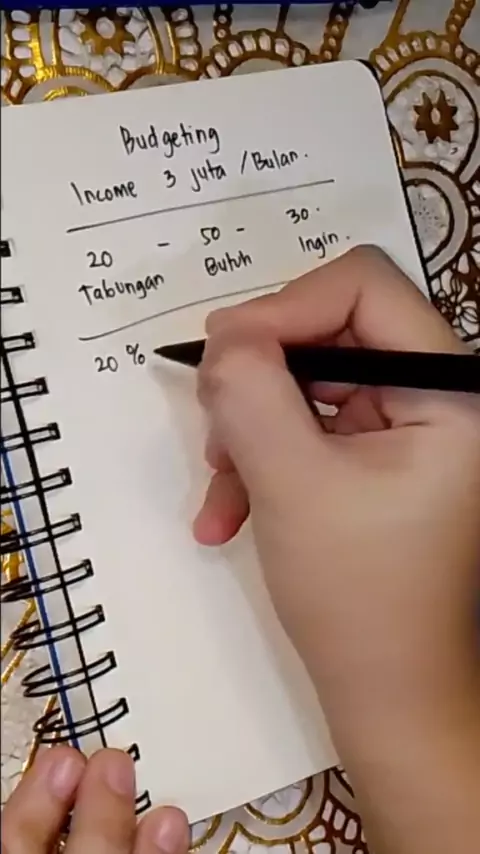 Budgeting
Income 3 juta / Bulan.
20 - 50 - 30.
Tabungan Butuh Ingin.
20 %